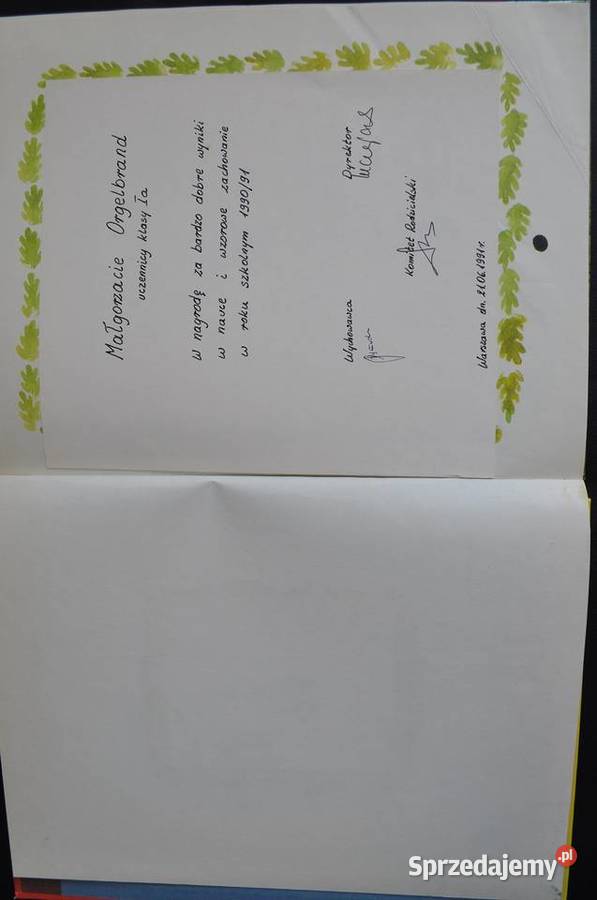 Małgorzacie Orgelbrand
uczennicy klasy Ia
W nagrodę za bardzo dobre wyniki
w nauce i wzorowe zachowanie
w roku szkolnym 1990/91
Wychowawca
Dyrektor
Komitet Rodzicielski
Warszawa dn. 21.06.1991r.
Sprzedajemy.pl